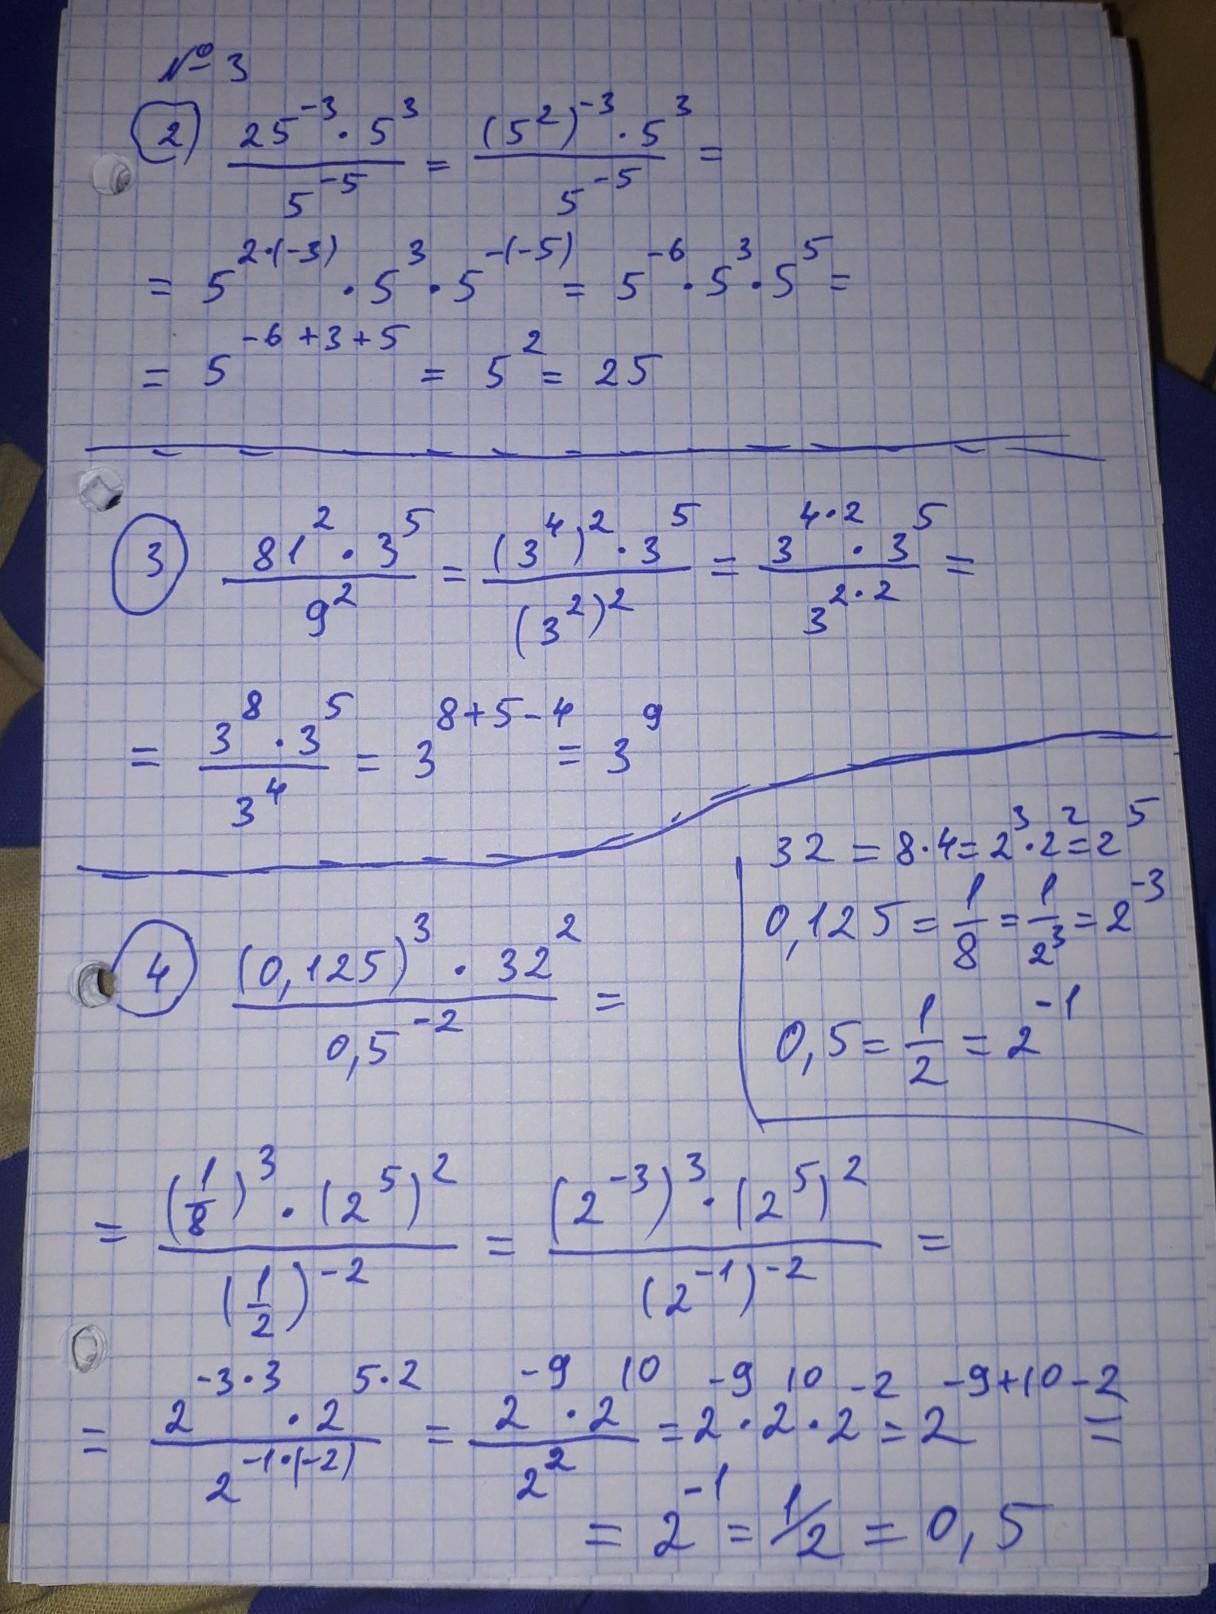 № 3
2) 25^-3 · 5^3 / 5^-5 = (5^2)^-3 · 5^3 / 5^-5 =
= 5^2·(-3) · 5^3 · 5^-(-5) = 5^-6 · 5^3 · 5^5 =
= 5^-6+3+5 = 5^2 = 25
3) 81^2 · 3^5 / 9^2 = (3^4)^2 · 3^5 / (3^2)^2 = 3^4·2 · 3^5 / 3^2·2 =
= 3^8 · 3^5 / 3^4 = 3^8+5-4 = 3^9
32 = 8·4 = 2^3 · 2^2 = 2^5
0,125 = 1/8 = 1/2^3 = 2^-3
0,5 = 1/2 = 2^-1
4) (0,125)^3 · 32^2 / 0,5^-2 =
= (1/8)^3 · (2^5)^2 / (1/2)^-2 = (2^-3)^3 · (2^5)^2 / (2^-1)^-2 =
= 2^-3·3 · 2^5·2 / 2^-1·(-2) = 2^-9 · 2^10 / 2^2 = 2^-9 · 2^10 · 2^-2 = 2^-9+10-2 =
= 2^-1 = 1/2 = 0,5